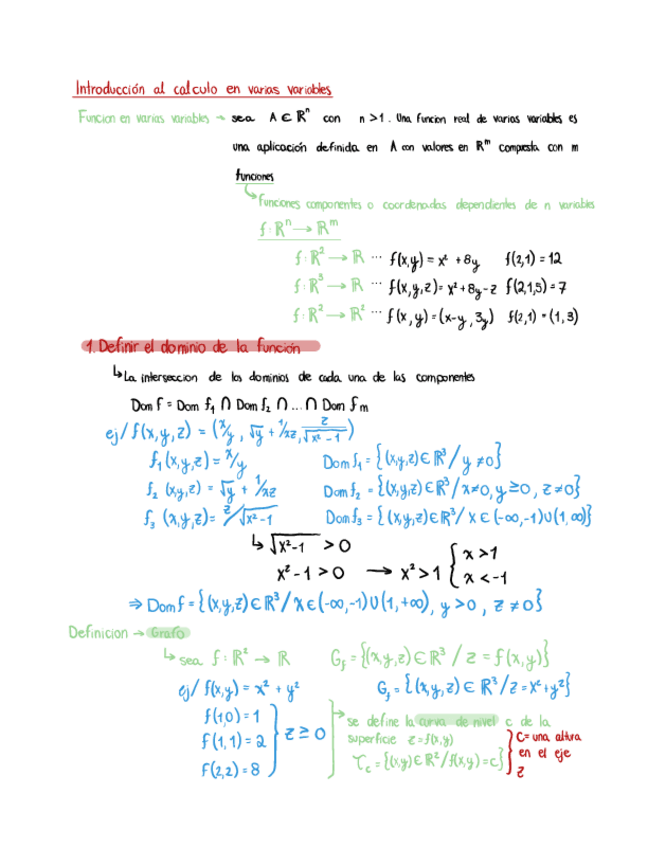 Introducción al calculo en varias variables
Funcion en varias variables → sea A ∈ ℝⁿ con n > 1. Una funcion real de varias variables es
una aplicación definida en A con valores en ℝᵐ compuesta con m
funciones
↳ funciones componentes o coordenadas dependientes de n variables
f: ℝⁿ → ℝᵐ
f: ℝ² → ℝ ... f(x,y) = x² + 8y f(2,1) = 12
f: ℝ³ → ℝ ... f(x,y,z) = x² + 8y - z f(2,1,5) = 7
f: ℝ² → ℝ² ... f(x,y) = (x-y, 3y) f(2,1) = (1,3)
1. Definir el dominio de la función
↳ La interseccion de los dominios de cada una de las componentes
Dom f = Dom f₁ ∩ Dom f₂ ∩ ... ∩ Dom fₘ
ej/ f(x,y,z) = (x/y, √y + 1/xz, z/√x²-1)
f₁(x,y,z) = x/y Dom f₁ = {(x,y,z) ∈ ℝ³ / y ≠ 0}
f₂ (x,y,z) = √y + 1/xz Dom f₂ = {(x,y,z) ∈ ℝ³ / x≠0, y≥0, z≠0}
f₃ (x,y,z) = z/√x²-1 Dom f₃ = {(x,y,z) ∈ ℝ³ / x ∈ (-∞,-1) U (1,∞)}
↳ √x²-1 > 0 { x > 1
x²-1 > 0 → x² > 1 { x < -1
⇒ Dom f = {(x,y,z) ∈ ℝ³ / x ∈ (-∞,-1) U (1,+∞), y > 0, z ≠ 0}
Definicion → Grafo
↳ sea f: ℝ² → ℝ G_f = {(x,y,z) ∈ ℝ³ / z = f(x,y)}
ej/ f(x,y) = x² + y² G_f = {(x,y,z) ∈ ℝ³ / z = x² + y²}
f(1,0) = 1
f(1,1) = 2 } z ≥ 0
f(2,2) = 8
→ se define la curva de nivel c de la
superficie z = f(x,y)
τ_c = {(x,y) ∈ ℝ² / f(x,y) = c}
c = una altura
en el eje
z